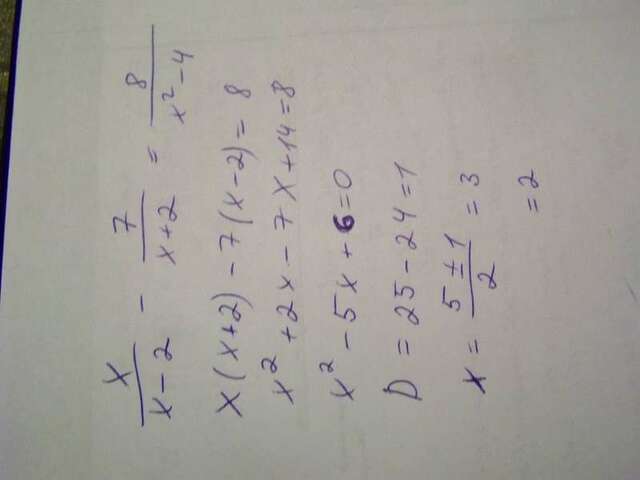 x/(x-2) - 7/(x+2) = 8/(x²-4)
x(x+2)-7(x-2)=8
x²+2x-7x+14=8
x²-5x+6=0
D=25-24=1
x=(5±1)/2=3
=2